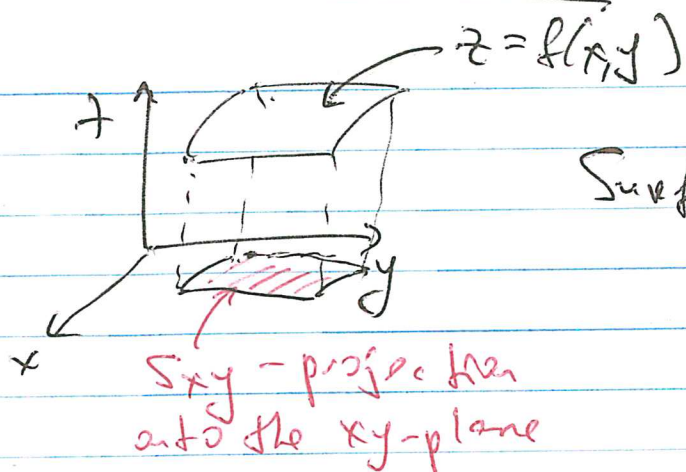 z = f(x,y)
z
Surf
y
x
Sxy - projection
onto the xy-plane